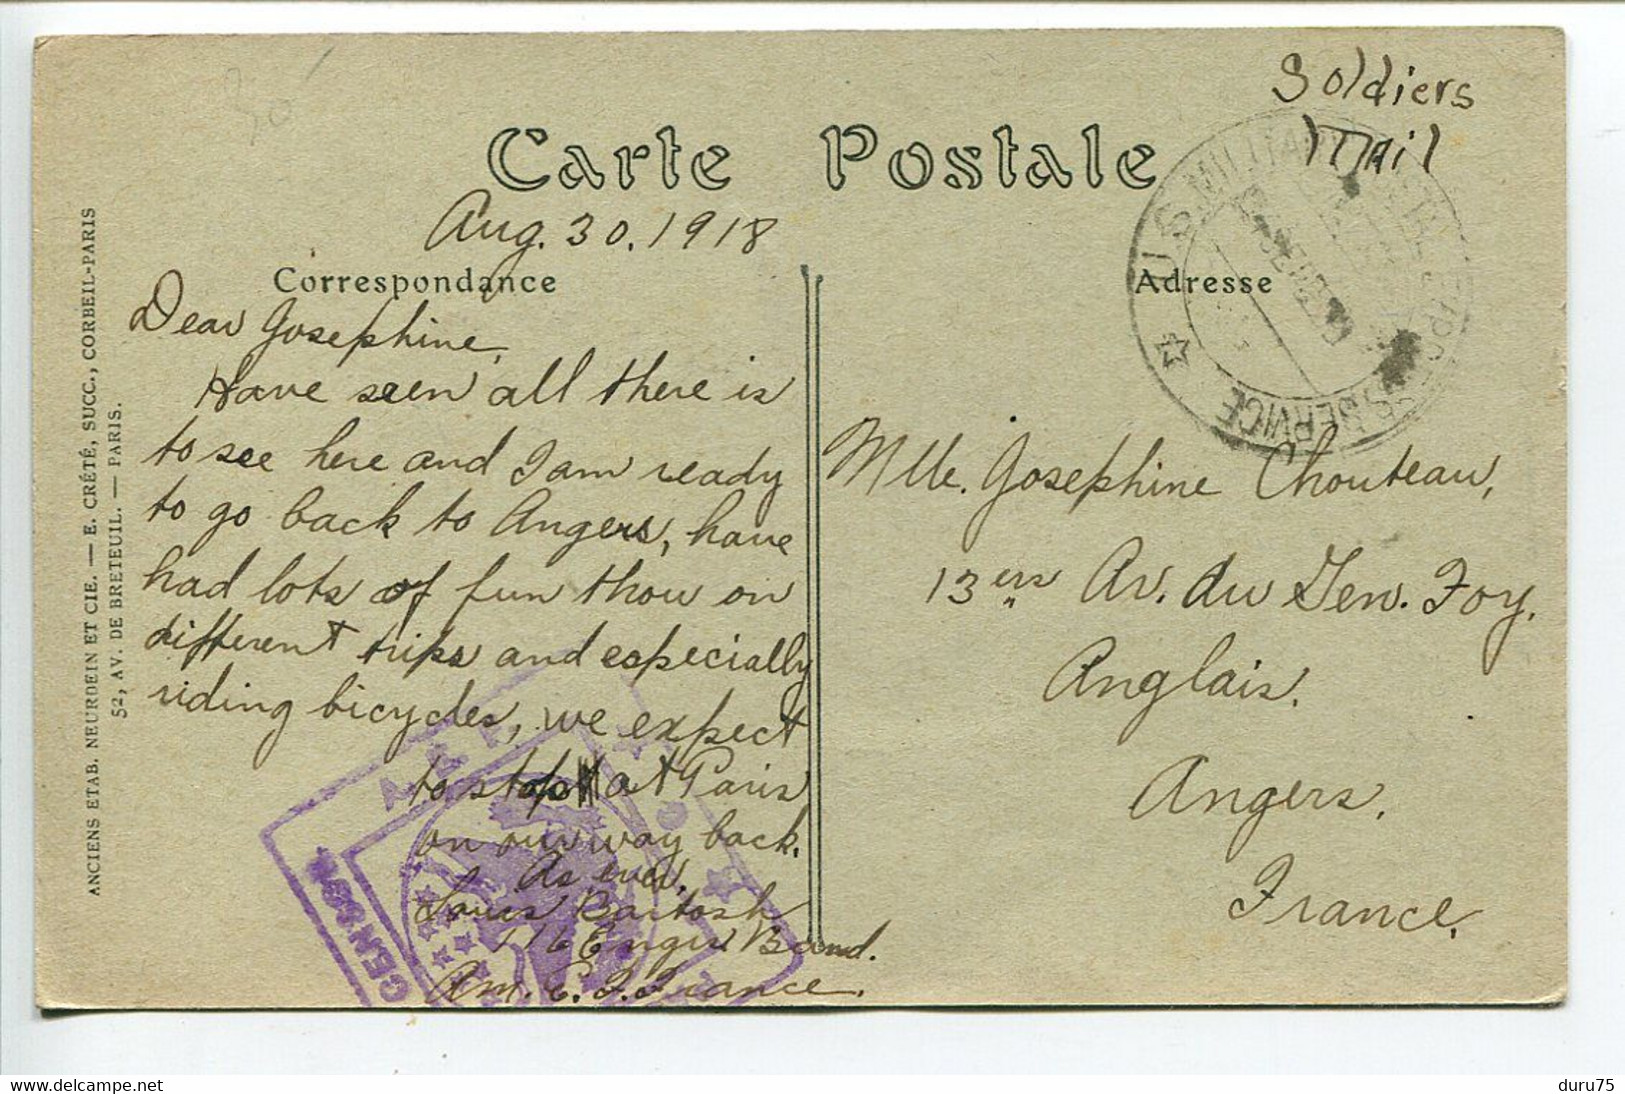 30
Soldiers
Mail
Carte Postale
Aug. 30. 1918
Correspondance
Adresse
U.S. MILITARY POSTAL EXPRESS SERVICE
Dear Josephine,
Have seen all there is
to see here and I am ready
to go back to Angers, have
had lots of fun thou on
different trips and especially
riding bicycles, we expect
to stop at Paris
on our way back.
As ever,
Louis Bartosh
116 Engrs. Band.
Am. E. F. France.
Mlle. Josephine Chouteau,
13 ers Av. du Gen. Foy.
Anglais.
Angers.
France.
A.E.F.
CENSOR
ANCIENS ETAB. NEURDEIN ET CIE. — E. CRÉTÉ, SUCC., CORBEIL-PARIS
52, AV. DE BRETEUIL. — PARIS.
www.delcampe.net
duru75